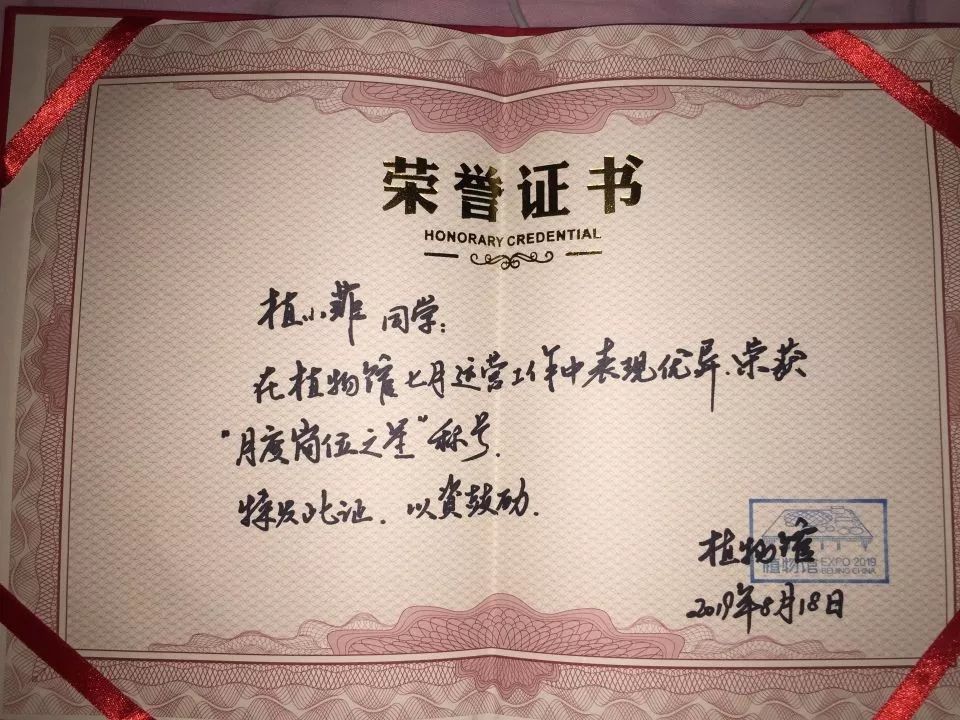 荣誉证书
HONORARY CREDENTIAL
植小菲 同学:
在植物馆七月运营工作中表现优异.荣获
"月度岗位之星"称号.
特发此证.以资鼓励.
植物馆
植物馆 EXPO 2019
BEIJING CHINA
2019年8月18日